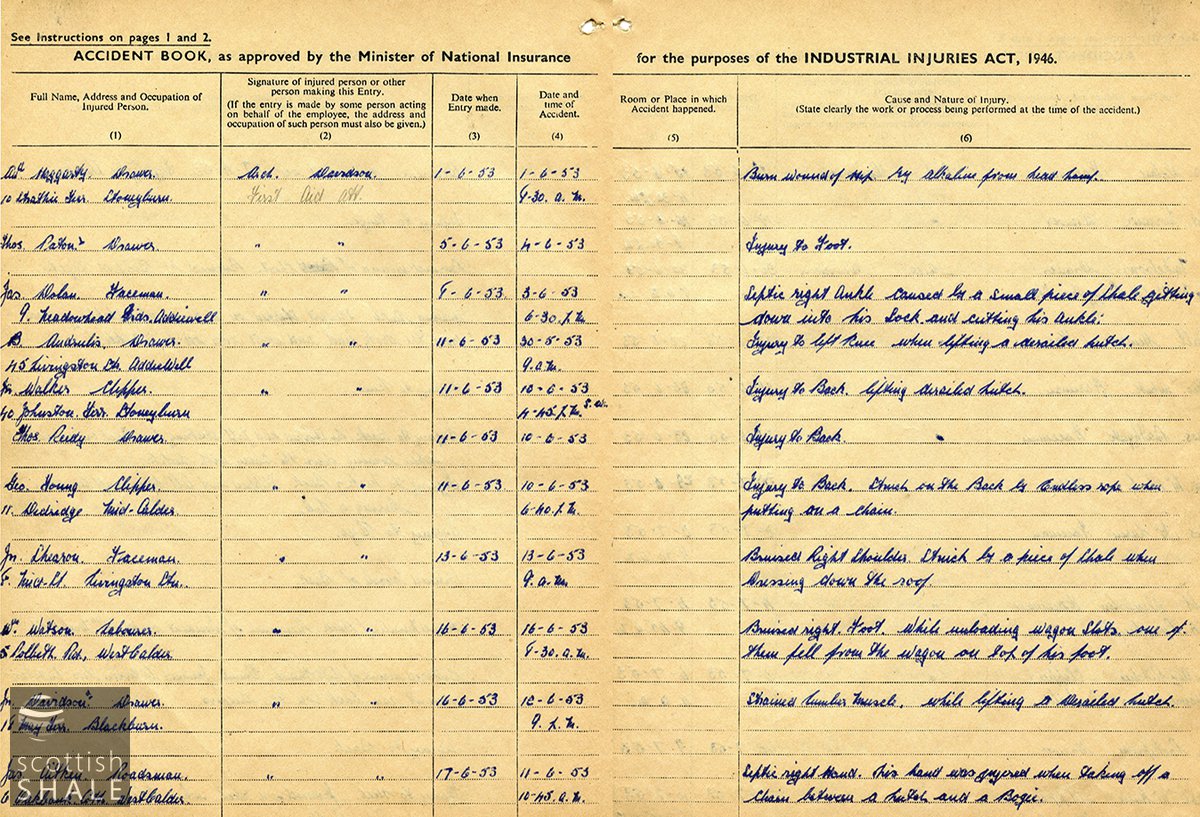 See Instructions on pages 1 and 2.
ACCIDENT BOOK, as approved by the Minister of National Insurance for the purposes of the INDUSTRIAL INJURIES ACT, 1946.
Full Name, Address and Occupation of Injured Person. (1)
Signature of injured person or other person making this Entry. (If the entry is made by some person acting on behalf of the employee, the address and occupation of such person must also be given.) (2)
Date when Entry made. (3)
Date and time of Accident. (4)
Room or Place in which Accident happened. (5)
Cause and Nature of Injury. (State clearly the work or process being performed at the time of the accident.) (6)
Haggarty. Drawer. Arch. Davidson. 1-6-53 1-6-53 Burn wound of hip by alkaline from head lamp.
10 Strathie Terr. Stoneyburn. First Aid Att. 9-30. a.m.
Thos. Paton Drawer " " 5-6-53 4-6-53 Injury to Foot.
Jas. Dolan. Faceman. " " 8-6-53 3-6-53 Septic right Ankle caused by a small piece of Shale getting
9. Meadowhead Addiewell 6-30. p.m. down into his Sock and cutting his Ankle.
B. Andrulis. Drawer. " " 11-6-53 30-5-53 Injury to left Knee when lifting a derailed hutch.
45 Livingston Addiewell 9. a.m.
Jn. Walker Clipper. " " 11-6-53 10-6-53 Injury to Back. lifting derailed hutch.
40 Johnston Terr. Stoneyburn 4-45. p.m.
Thos. Reidy Drawer 11-6-53 10-6-53 Injury to Back.
Geo. Young Clipper. " " 11-6-53 10-6-53 Injury to Back. Struck on the Back by Endless rope when
11. Dedridge Mid-Calder. 6-40. p.m. putting on a chain.
Jn. Shearon. Faceman. " " 13-6-53 13-6-53 Bruised Right Shoulder. Struck by a piece of Shale when
Mid-St. Livingston Stn. 9. a.m. Dressing down the roof.
Wm. Watson. Labourer. " " 16-6-53 16-6-53 Bruised right. Foot. While unloading wagon Slats. one of
5 Polbeth Rd., West Calder 8-30. a.m. them fell from the wagon on top of his foot.
Jn. Davidson Drawer " " 16-6-53 12-6-53 Strained lumbar muscle. while lifting a Derailed hutch.
18 May Terr. Blackburn. 9. p.m.
Jas. Aitken. Roadsman. " " 17-6-53 11-6-53 Septic right Hand. This hand was injured when taking off a
West Calder. 10-45. a.m. Chain between a hutch and a Bogie.
scottish
SHALE